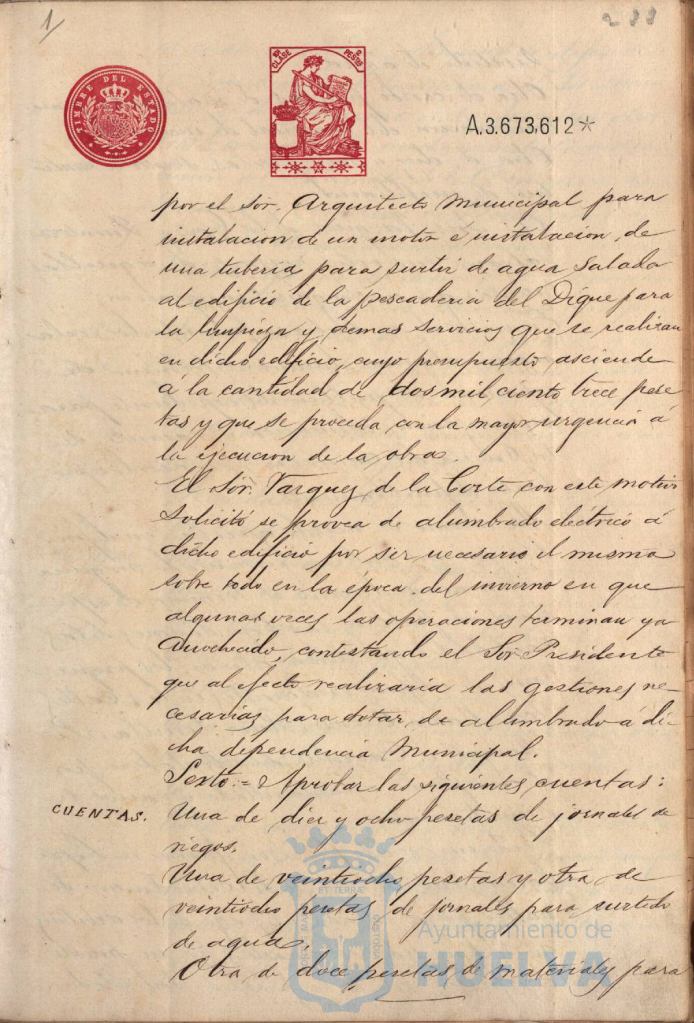 1
288
TIMBRE DEL ESTADO
10ª CLASE
2 PESETAS
A.3.673.612*
por el Sor. Arquitecto Municipal para
instalacion de un motor é instalacion de
una tuberia para surtir de agua salada
al edificio de la pescaderia del Dique para
la limpieza y demas servicios que se realizan
en dicho edificio, cuyo presupuesto asciende
á la cantidad de dos mil ciento trece pese
tas y que se proceda con la mayor urgencia á
la ejecucion de la obra.
El Sor. Vazquez de la Corte con este motivo
solicitó se provea de alumbrado electrico á
dicho edificio por ser necesario el mismo
sobre todo en la época del invierno en que
algunas veces las operaciones terminan ya
anochecido, contestando el Sor Presidente
que al efecto realizaria las gestiones ne-
cesarias para dotar de alumbrado á di-
cha dependencia Municipal.
Sexto.= Aprobar las siguientes cuentas:
CUENTAS.
Una de diez y ocho pesetas de jornales de
riegos.
Una de veintiocho pesetas y otra de
veintiocho pesetas de jornales para surtido
de agua.
Otra de doce pesetas de materiales para
Ayuntamiento de
HUELVA